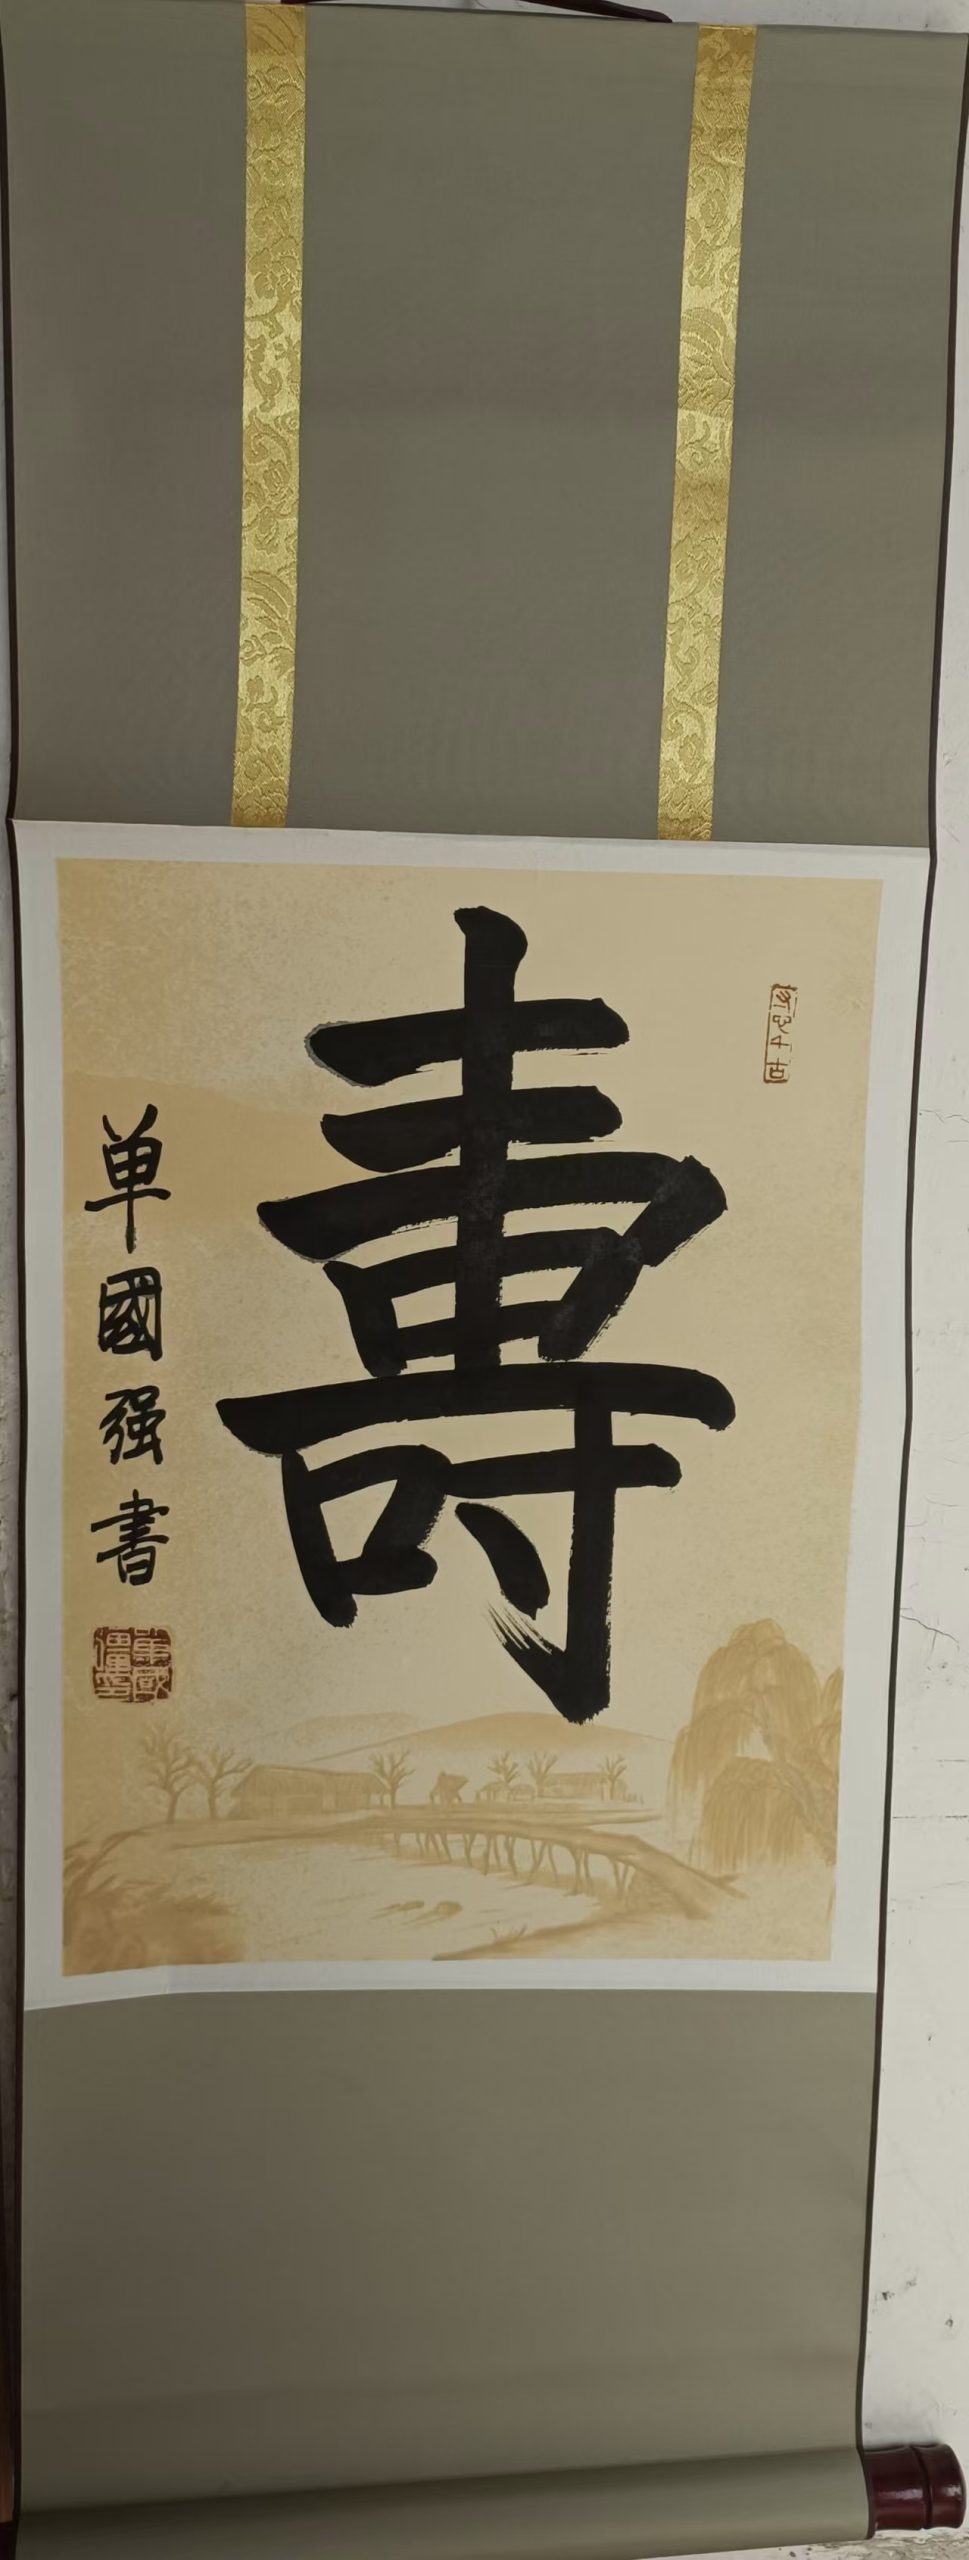 壽
单國强書